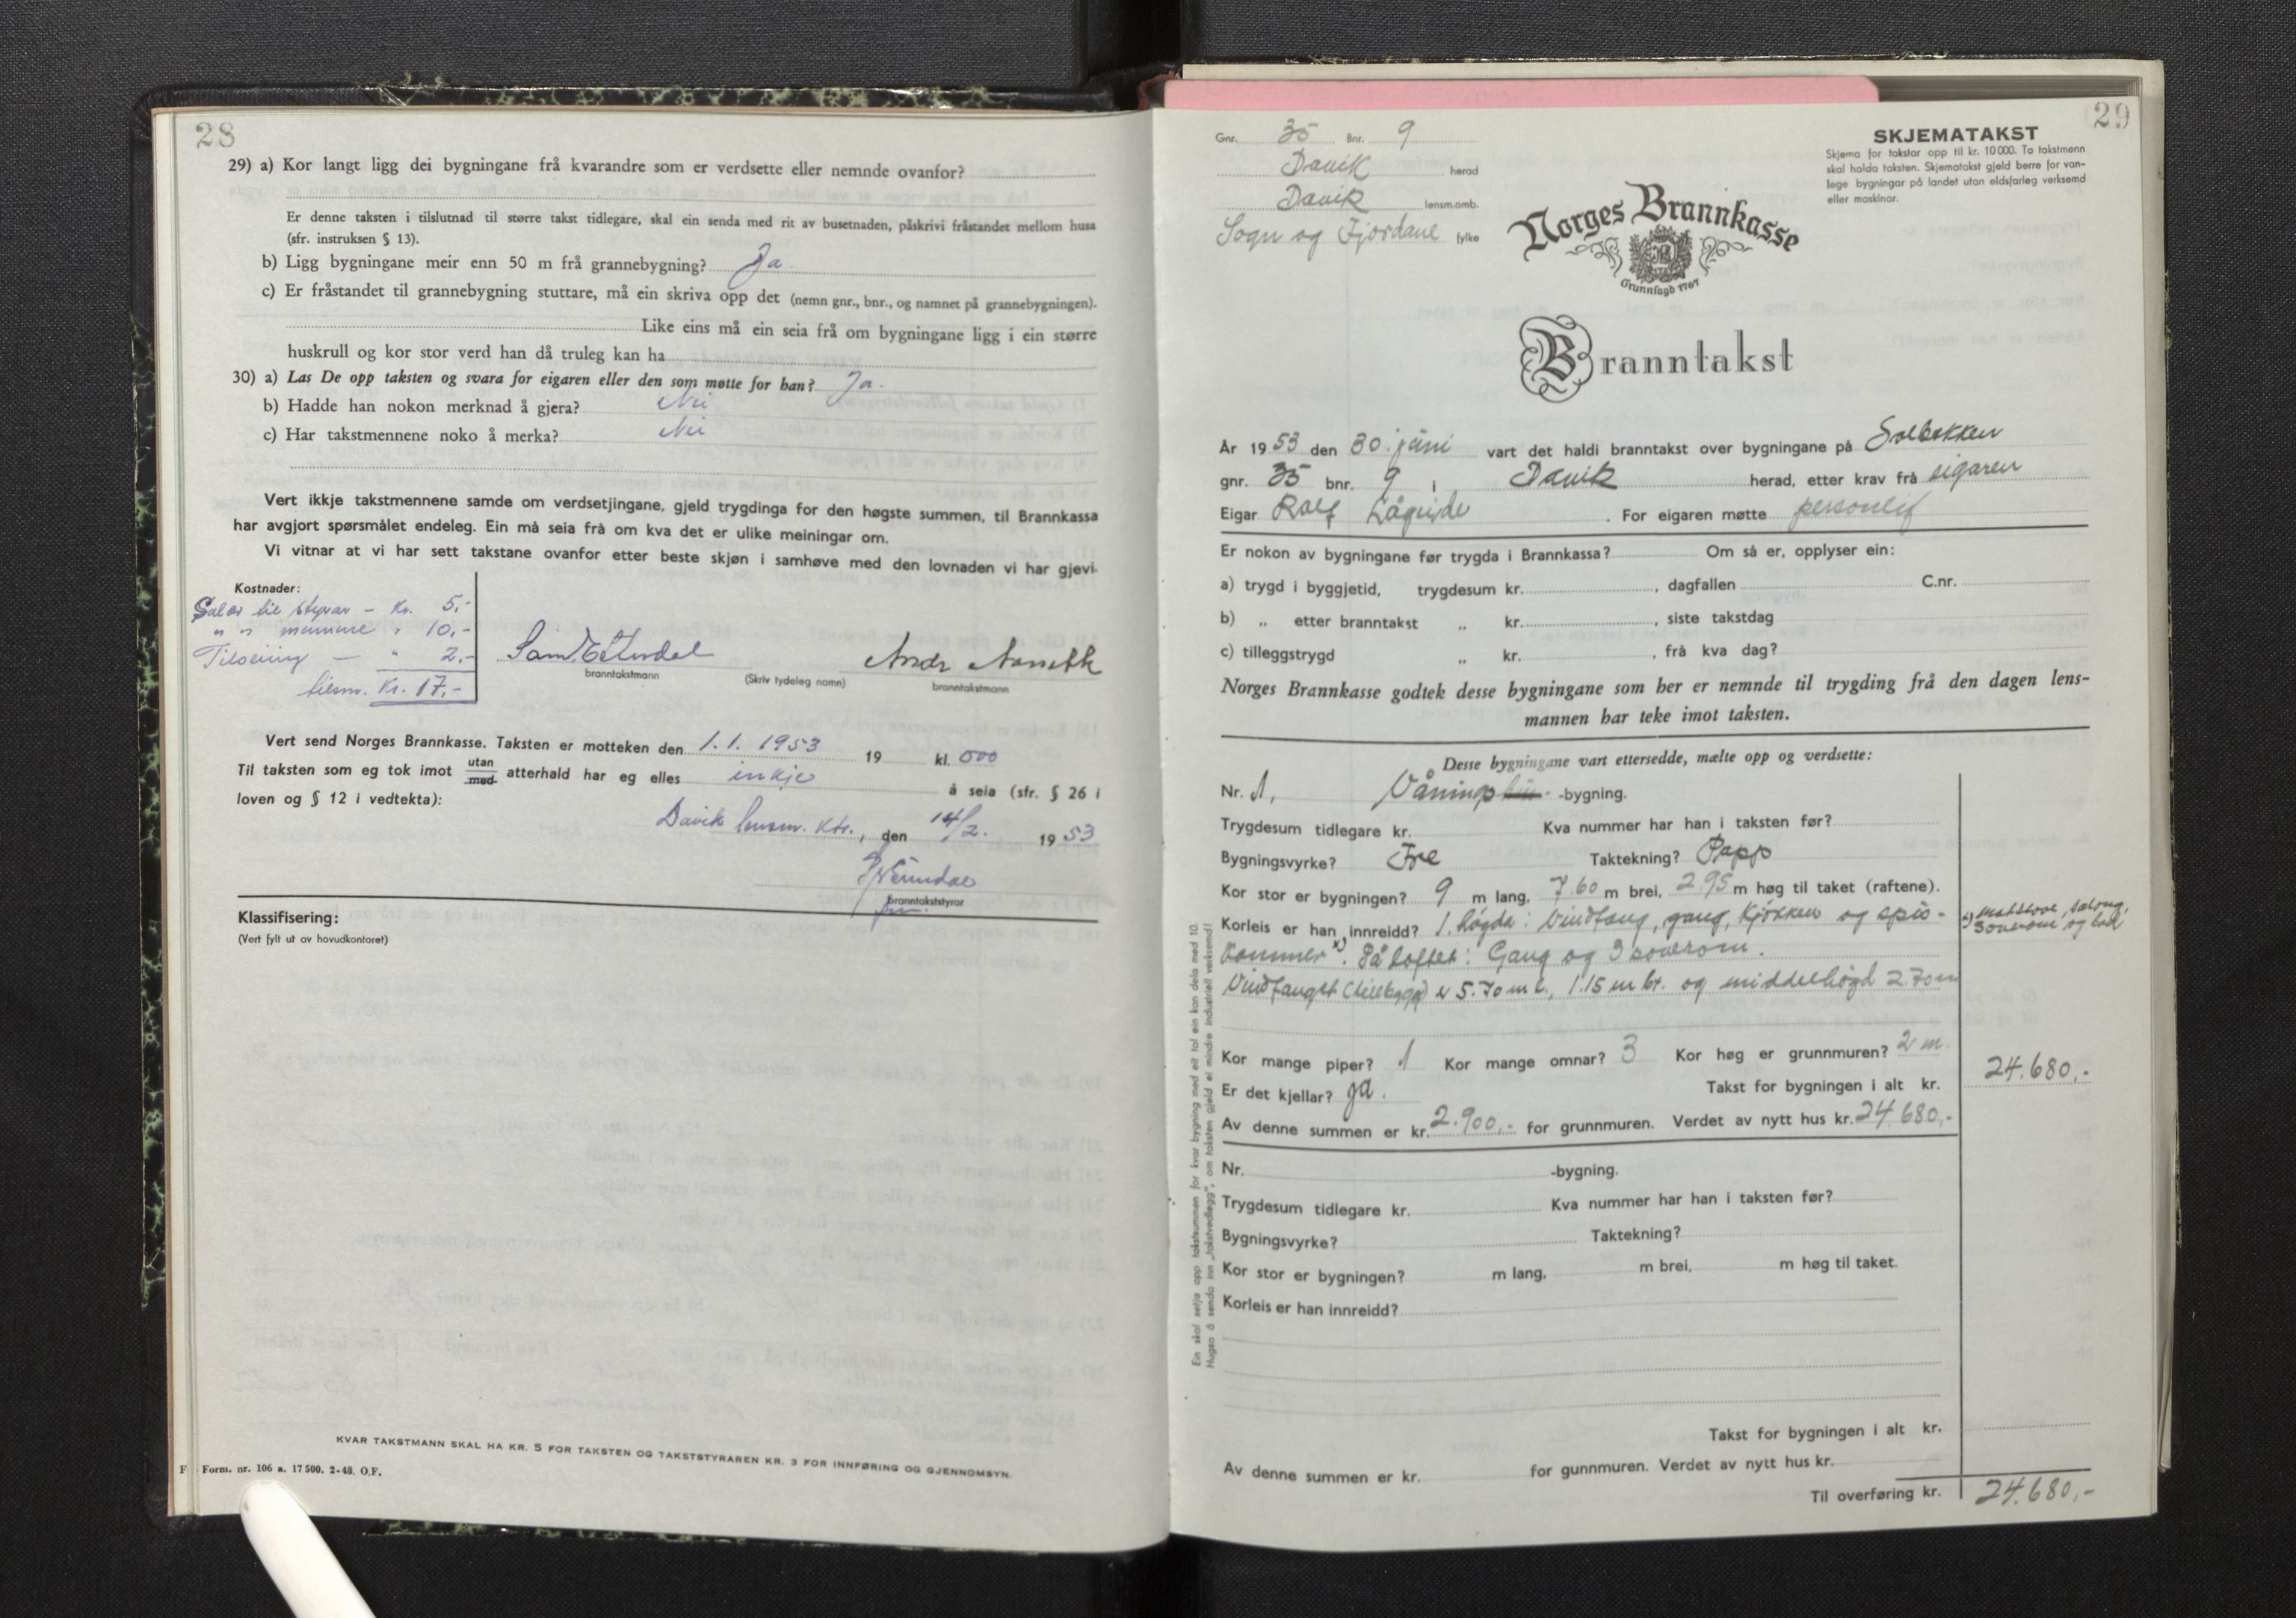 28
29) a) Kor langt ligg dei bygningane frå kvarandre som er verdsette eller nemnde ovanfor?
Er denne taksten i tilslutnad til større takst tidlegare, skal ein senda med rit av busetnaden, påskrivi fråstandet mellom husa
(sfr. instruksen § 13).
b) Ligg bygningane meir enn 50 m frå grannebygning? Ja
c) Er fråstandet til grannebygning stuttare, må ein skriva opp det (nemn gnr., bnr., og namnet på grannebygningen).
Like eins må ein seia frå om bygningane ligg i ein større
huskrull og kor stor verd han då truleg kan ha
30) a) Las De opp taksten og svara for eigaren eller den som møtte for han? Ja.
b) Hadde han nokon merknad å gjera? Nei
c) Har takstmennene noko å merka? Nei
Vert ikkje takstmennene samde om verdsetjingane, gjeld trygdinga for den høgste summen, til Brannkassa
har avgjort spørsmålet endeleg. Ein må seia frå om kva det er ulike meiningar om.
Vi vitnar at vi har sett takstane ovanfor etter beste skjøn i samhøve med den lovnaden vi har gjevi.
Kostnader:
Salær til styrar - Kr. 5,-
" " mennene " 10,-
" 2,-
tilsm. Kr. 17,-
branntakstmann
(Skriv tydeleg namn)
branntakstmann
Vert send Norges Brannkasse. Taksten er motteken den 1.1. 1953 19 kl. 000
Til taksten som eg tok imot utan/med atterhald har eg elles inkje å seia (sfr. § 26 i
loven og § 12 i vedtekta):
Davik lensm. ktr., den 14/2. 1953
branntakststyrar
Klassifisering:
(Vert fylt ut av hovudkontoret)
KVAR TAKSTMANN SKAL HA KR. 5 FOR TAKSTEN OG TAKSTSTYRAREN KR. 3 FOR INNFØRING OG GJENNOMSYN.
F Form. nr. 106 a. 17 500. 2-48. O.F.
29
Gnr. 35 Bnr. 9
Davik herad
Davik lensm.omb.
Sogn og Fjordane fylke
SKJEMATAKST
Skjema for takstar opp til kr. 10 000. To takstmenn
skal halda taksten. Skjematakst gjeld berre for van-
lege bygningar på landet utan eldsfarleg verksemd
eller maskinar.
Norges Brannkasse
Grunnlagd 1767
Branntakst
År 1953 den 30. juni vart det haldi branntakst over bygningane på Solbakken
gnr. 35 bnr. 9 i Davik herad, etter krav frå eigaren
Eigar Rolf . For eigaren møtte personlig
Er nokon av bygningane før trygda i Brannkassa? Om så er, opplyser ein:
a) trygd i byggjetid, trygdesum kr. , dagfallen C.nr.
b) „ etter branntakst „ kr. , siste takstdag
c) tilleggstrygd „ kr. , frå kva dag?
Norges Brannkasse godtek desse bygningane som her er nemnde til trygding frå den dagen lens-
mannen har teke imot taksten.
Desse bygningane vart ettersedde, mælte opp og verdsette:
Nr. 1, Vånings -bygning.
Trygdesum tidlegare kr. Kva nummer har han i taksten før?
Bygningsvyrke? Tre Taktekning? Papp
Kor stor er bygningen? 9 m lang, 7.60 m brei, 2.95 m høg til taket (raftene).
Korleis er han innreidd? 1. høgda: Vindfang, gang, kjøkken og spis-
x) matstove, salong,
3 soverom og bad
kammer x). På loftet: Gang og 3 soverom.
Vindfanget (tilbygg) er 5.70 m l., 1.15 m br. og middelhøgd 2.70 m
Kor mange piper? 1 Kor mange omnar? 3 Kor høg er grunnmuren? 2 m.
Er det kjellar? ja. Takst for bygningen i alt kr. 24.680,-
Av denne summen er kr. 2.900,- for grunnmuren. Verdet av nytt hus kr. 24.680,-
Nr. -bygning.
Trygdesum tidlegare kr. Kva nummer har han i taksten før?
Bygningsvyrke? Taktekning?
Kor stor er bygningen? m lang, m brei, m høg til taket.
Korleis er han innreidd?
Takst for bygningen i alt kr.
Av denne summen er kr. for gunnmuren. Verdet av nytt hus kr.
Til overføring kr. 24.680,-
Ein skal setja opp takstsummen for kvar bygning med eit tal ein kan dela med 10.
Hugso å senda inn „takstvedlegg", om taksten gjeld ei mindre industriell verksemd!